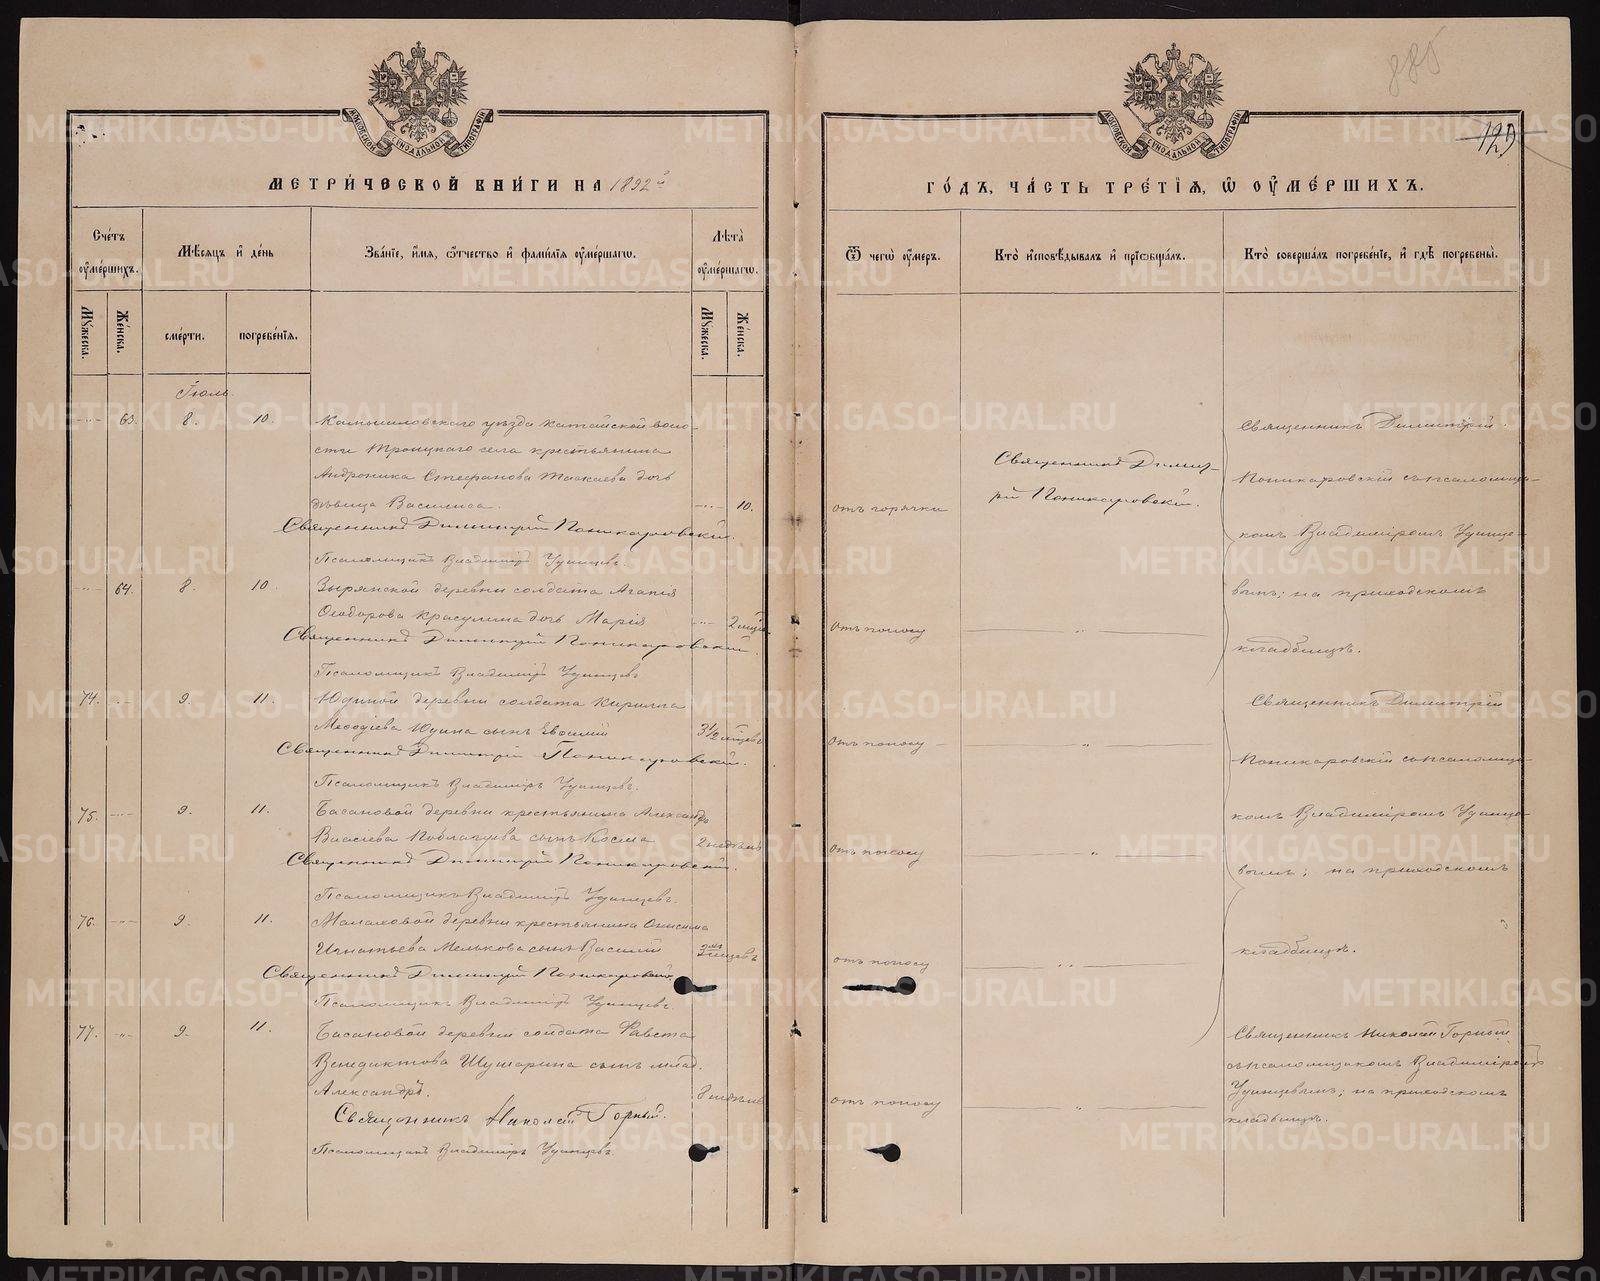 885
129
МЕТРИЧЕСКОЙ КНИГИ НА 1892 г
ГОДЪ, ЧАСТЬ ТРЕТІЯ, Ѿ ОУМЕРШИХЪ.
Счетъ оумершихъ.
Мѣсяцъ и день
Званіе, имя, отчество и фамилія оумершагѡ.
Лѣта оумершагѡ.
Ѿ чегѡ оумеръ.
Кто исповѣдывалъ и пріобщалъ.
Кто совершалъ погребеніе, и гдѣ погребены.
Мужеска.
Женска.
смерти.
погребенія.
Мужеска.
Женска.
Іюль
63. 8. 10. Камышловскаго уѣзда Катайской воло-
сти Троицкаго села крестьянина
Андроника Стефанова дочь
дѣвица Васса 10. отъ горячки
Священникъ Димитрій Поникаровскій.
Псаломщикъ Владиміръ Удинцевъ.
Священникъ Димит-
рій Поникаровскій.
64. 8. 10 Зырянской деревни солдата Агапія
Ѳеодорова Красулина дочь Марія 2 мѣс. отъ поносу
Священникъ Димитрій Поникаровскій.
Псаломщикъ Владиміръ Удинцевъ
Священникъ Димитрій
Поникаровскій съ псаломщи-
комъ Владиміромъ Удинце-
вымъ; на приходскомъ
кладбищѣ.
74. 9. 11. Юдиной деревни солдата Кирилла
Меѳодіева Юдина сынъ Евѳимій 3½ мѣсцевъ отъ поносу
Священникъ Димитрій Поникаровскій.
Псаломщикъ Владиміръ Удинцевъ.
75. 9. 11. Басановой деревни крестьянина Александра
Власіева сынъ Косма 2 недѣль отъ поносу
Священникъ Димитрій Поникаровскій.
Псаломщикъ Владиміръ Удинцевъ.
76. 9. 11. Малаховой деревни крестьянина Онисима
Игнатьева Мелькова сынъ Василій 2 мѣсцевъ отъ поносу
Священникъ Димитрій Поникаровскій
Псаломщикъ Владиміръ Удинцевъ.
Священникъ Димитрій
Поникаровскій съ псаломщи-
комъ Владиміромъ Удинце-
вымъ; на приходскомъ
кладбищѣ.
77. 9. 11. Басановой деревни солдата Фавста
Венедиктова Шушарина сынъ млад.
Александръ. 8 недѣль отъ поносу
Священникъ Николай Горный.
Псаломщикъ Владиміръ Удинцевъ.
Священникъ Николай Горный
съ псаломщикомъ Владиміромъ
Удинцевымъ; на приходскомъ
кладбищѣ.
METRIKI.GASO-URAL.RU